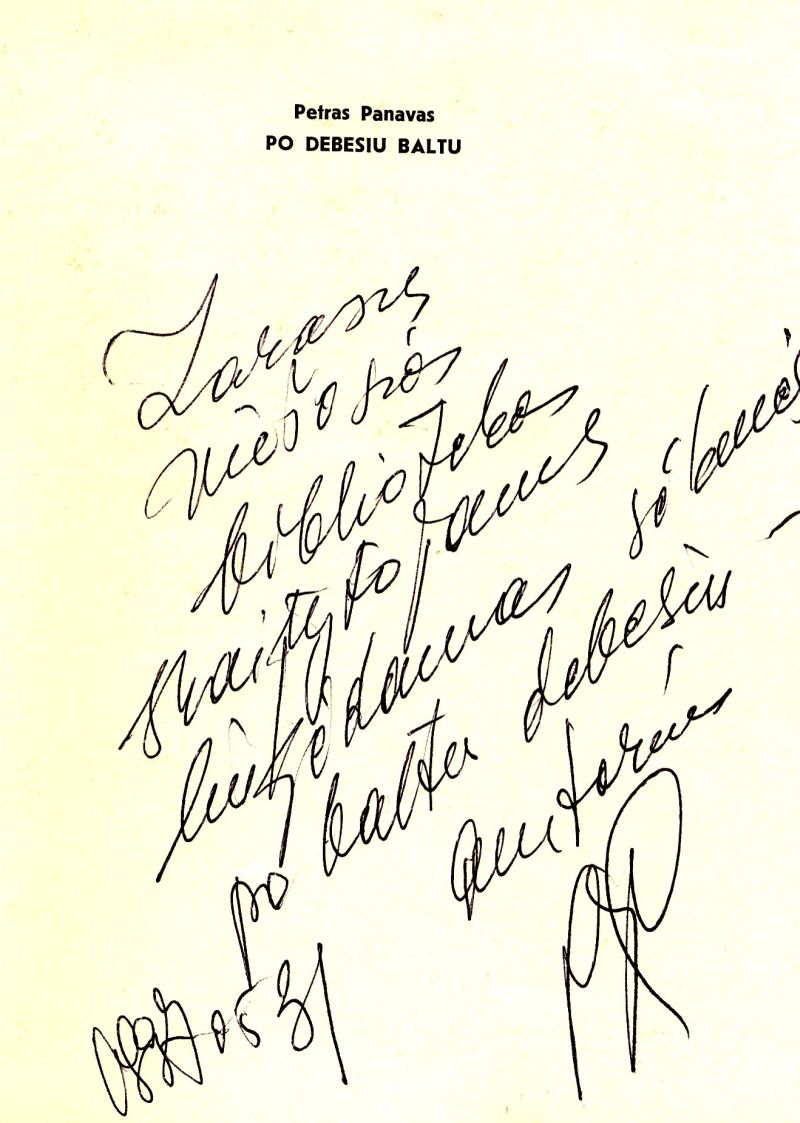 Petras Panavas
PO DEBESIU BALTU
Zarasų
viešosios
bibliotekos
skaitytojams
linkėdamas sėkmės
po baltu debesiu –
autorius
05 31